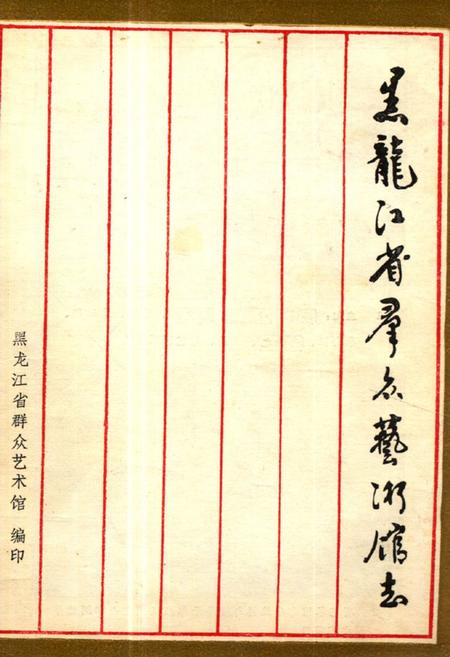 黑龍江省群众藝術馆志
黑龙江省群众艺术馆 编印